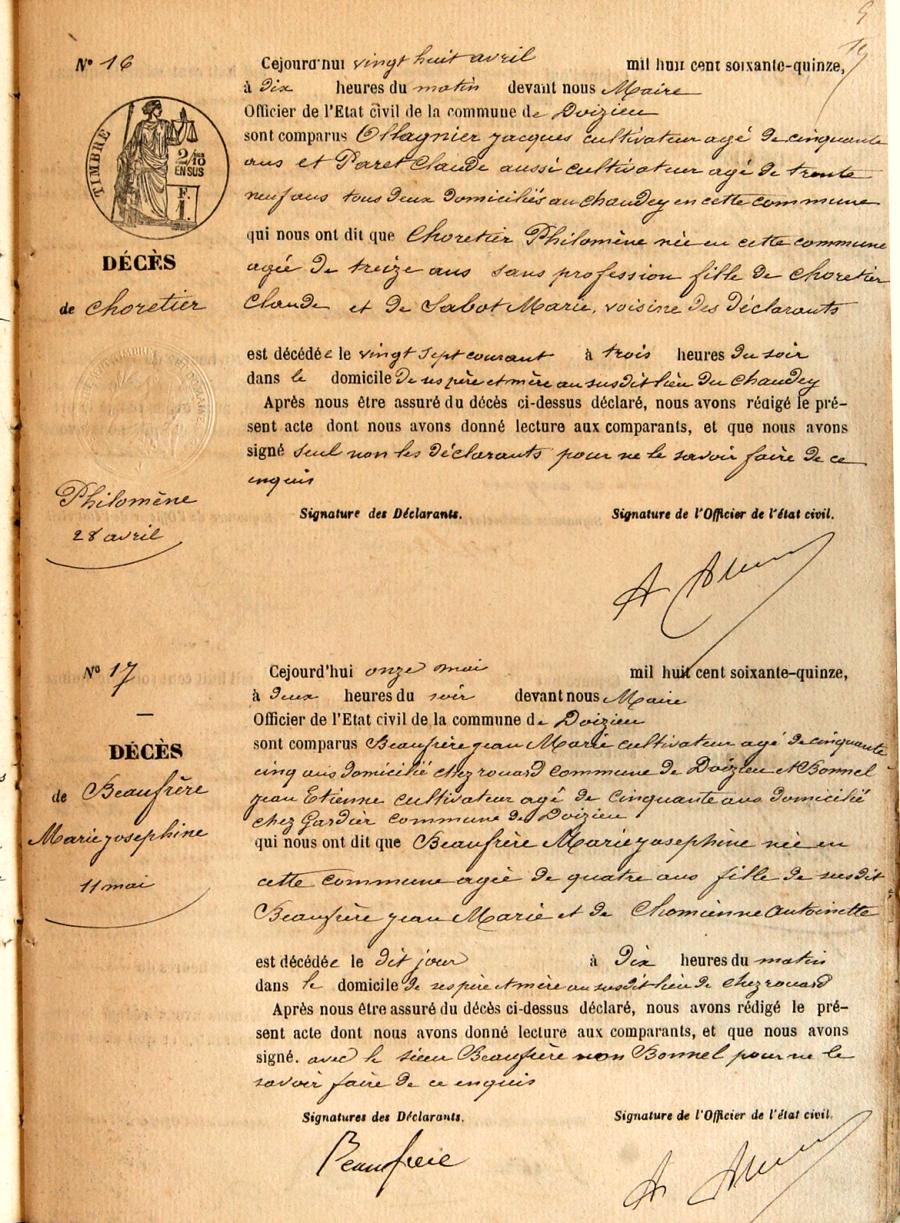 Nº 16
TIMBRE
2/10
EN SUS
F.
1.
DÉCÈS
de Choretier
Philomène
28 avril
Cejourd'hui vingt huit avril mil huit cent soixante-quinze,
à Dix heures du matin devant nous Maire
Officier de l'Etat civil de la commune de Doizieu
sont comparus Ollagnier jacques cultivateur agé de cinquante
ans et Paret Claude aussi cultivateur agé de trente
neuf ans tous deux domiciliés au chaudey en cette commune
qui nous ont dit que Choretier Philomène née en cette commune
agée de treize ans sans profession fille de choretier
Claude et de Sabot Marie, voisine des déclarants
est décédée le vingt sept courant à trois heures du soir
dans le domicile de ses père et mère au susdit lieu du chaudey
Après nous être assuré du décès ci-dessus déclaré, nous avons rédigé le pré-
sent acte dont nous avons donné lecture aux comparants, et que nous avons
signé seul non les déclarants pour ne le savoir faire de ce
enquis
Signature des Déclarants. Signature de l'Officier de l'état civil.
Nº 17
DÉCÈS
de Beaufrère
Marie josephine
11 mai
Cejourd'hui onze mai mil huit cent soixante-quinze,
à deux heures du soir devant nous Maire
Officier de l'Etat civil de la commune de Doizieu
sont comparus Beaufrère jean Marie cultivateur agé de cinquante
cinq ans domicilié chez rouard commune de Doizieu et Bonnel
jean Etienne cultivateur agé de cinquante ans domicilié
chez Gardier commune de Doizieu
qui nous ont dit que Beaufrère Marie josephine née en
cette commune agée de quatre ans fille de susdit
Beaufrère jean Marie et de Chomienne Antoinette
est décédée le dit jour à Dix heures du matin
dans le domicile de ses père et mère au susdit lieu de chez rouard
Après nous être assuré du décès ci-dessus déclaré, nous avons rédigé le pré-
sent acte dont nous avons donné lecture aux comparants, et que nous avons
signé. avec le sieur Beaufrère non Bonnel pour ne le
savoir faire de ce enquis
Signatures des Déclarants. Signature de l'Officier de l'état civil.
Beaufrere